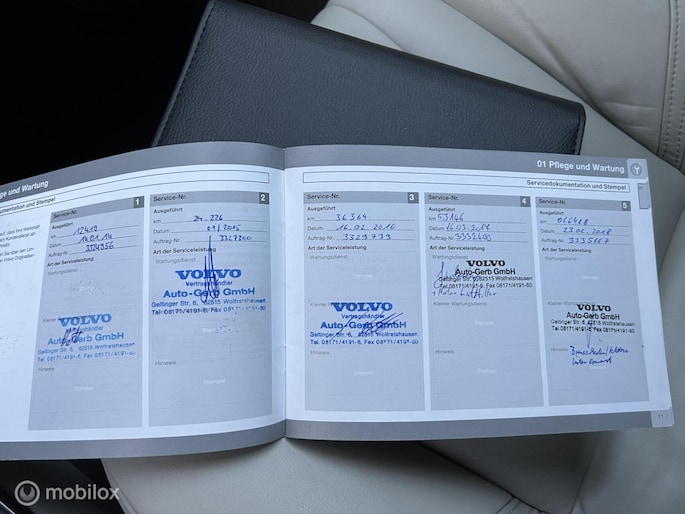 ge und Wartung
umentation und Stempel
Service-Nr. 1
Ausgeführt
km 12419
Datum 14.01.14
Auftrag-Nr. 3314956
Art der Serviceleistung
Wartungsdienst
Kleiner Wartungsdienst
VOLVO
Vertragshändler
Auto-Gerb GmbH
Geltinger Str. 6, 82515 Wolfratshausen
Tel. 08171/4191-0
Hinweis
Service-Nr. 2
Ausgeführt
km 24.226
Datum 01/2015
Auftrag-Nr. 3327200
Art der Serviceleistung
Wartungsdienst
VOLVO
Vertragshändler
Auto-Gerb GmbH
Geltinger Str. 6, 82515 Wolfratshausen
Tel. 08171/4191-0, Fax 08171/4191-80
Hinweis
01 Pflege und Wartung
Servicedokumentation und Stempel
Service-Nr. 3
Ausgeführt
km 36364
Datum 16.02.2016
Auftrag-Nr. 3329733
Art der Serviceleistung
Wartungsdienst
Kleiner Wartungsdienst
VOLVO
Vertragshändler
Auto-Gerb GmbH
Geltinger Str. 6, 82515 Wolfratshausen
Tel. 08171/4191-0, Fax 08171/4191-80
Hinweis
Service-Nr. 4
Ausgeführt
km 53146
Datum
Auftrag-Nr.
Art der Serviceleistung
Wartungsdienst
VOLVO
Auto-Gerb GmbH
Geltinger Str. 6, 82515 Wolfratshausen
Tel. 08171/4191-0, Fax 08171/4191-80
Kleiner Wartungsdienst
Hinweis
Service-Nr. 5
Ausgeführt
km
Datum 23.02.2018
Auftrag-Nr. 3335117
Art der Serviceleistung
Wartungsdienst
Kleiner Wartungsdienst
VOLVO
Auto-Gerb GmbH
Geltinger Str. 6, 82515 Wolfratshausen
Hinweis
11
mobilox